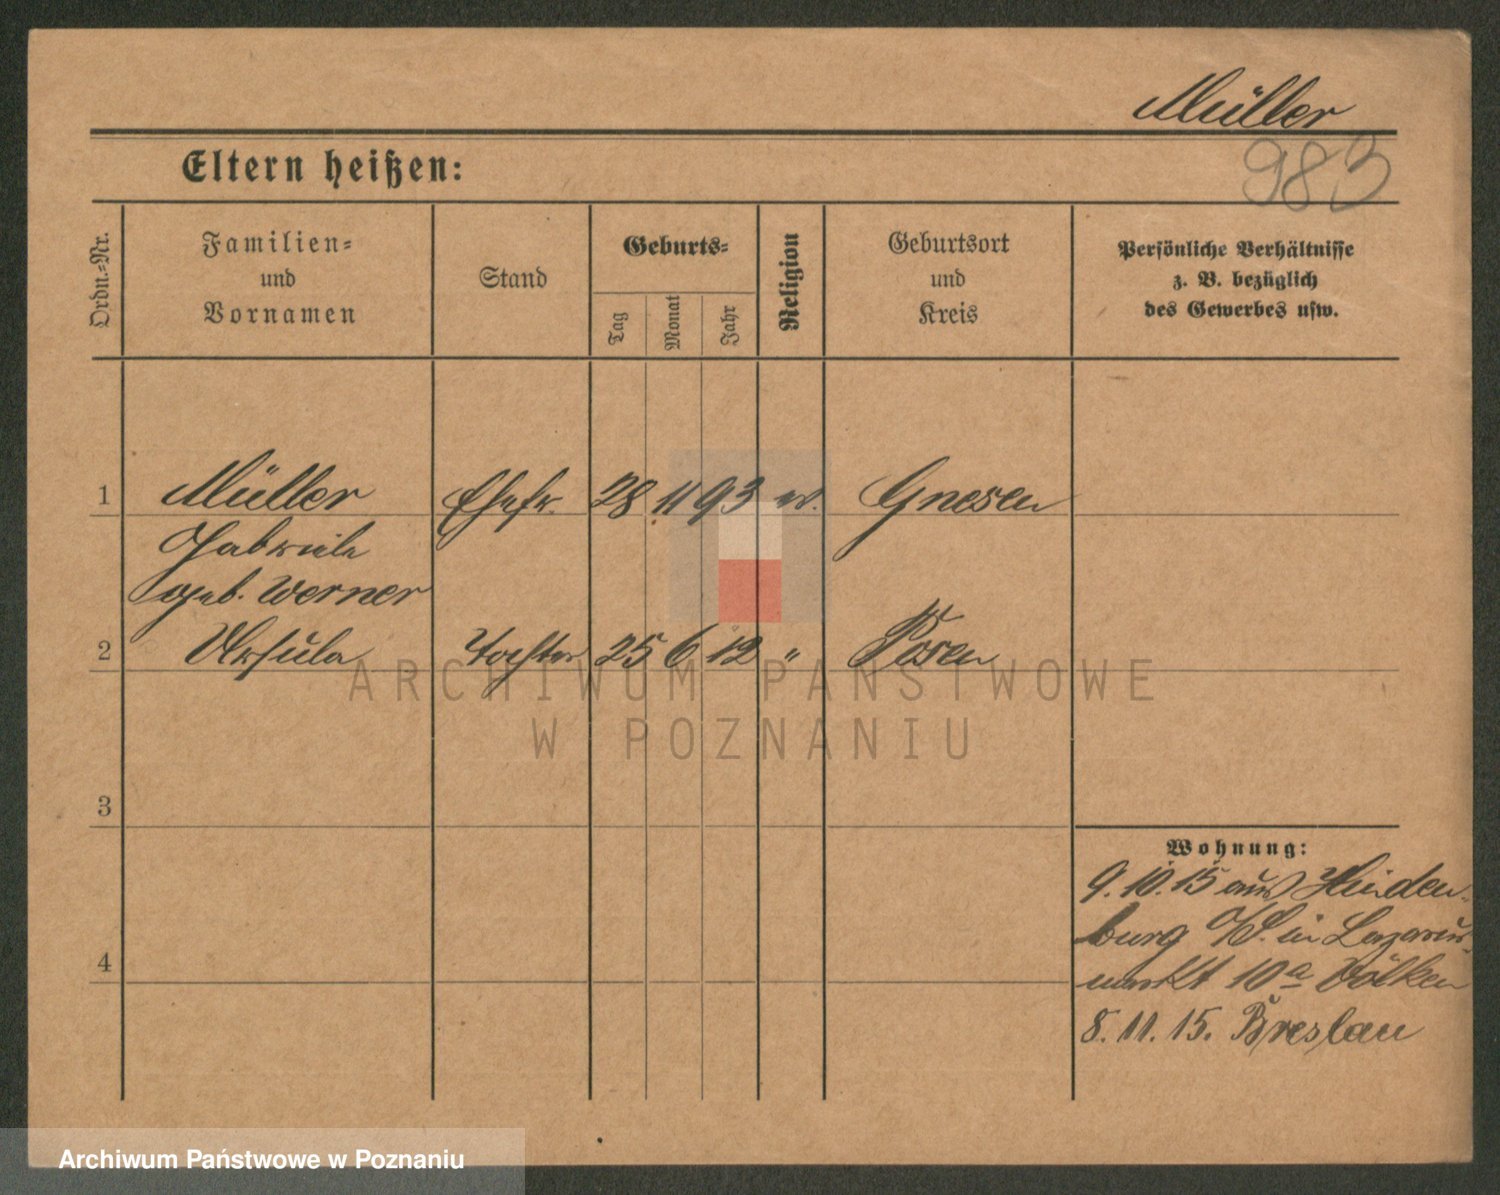 Müller
983
Eltern heißen:
Ordn.=Nr.
Familien=
und
Vornamen
Stand
Geburts=
Tag
Monat
Jahr
Religion
Geburtsort
und
Kreis
Persönliche Verhältnisse
z. B. bezüglich
des Gewerbes usw.
1 Müller Ehefr. 28 11 93 ev. Gnesen
Gabriele
geb. Werner
2 Ursula Tochter 25 6 12 " Posen
3
4
Wohnung:
9.10.15 aus Hinden-
burg O/S. in Lazarus-
markt 10a
8.11.15. Breslau
ARCHIWUM PAŃSTWOWE
W POZNANIU
Archiwum Państwowe w Poznaniu